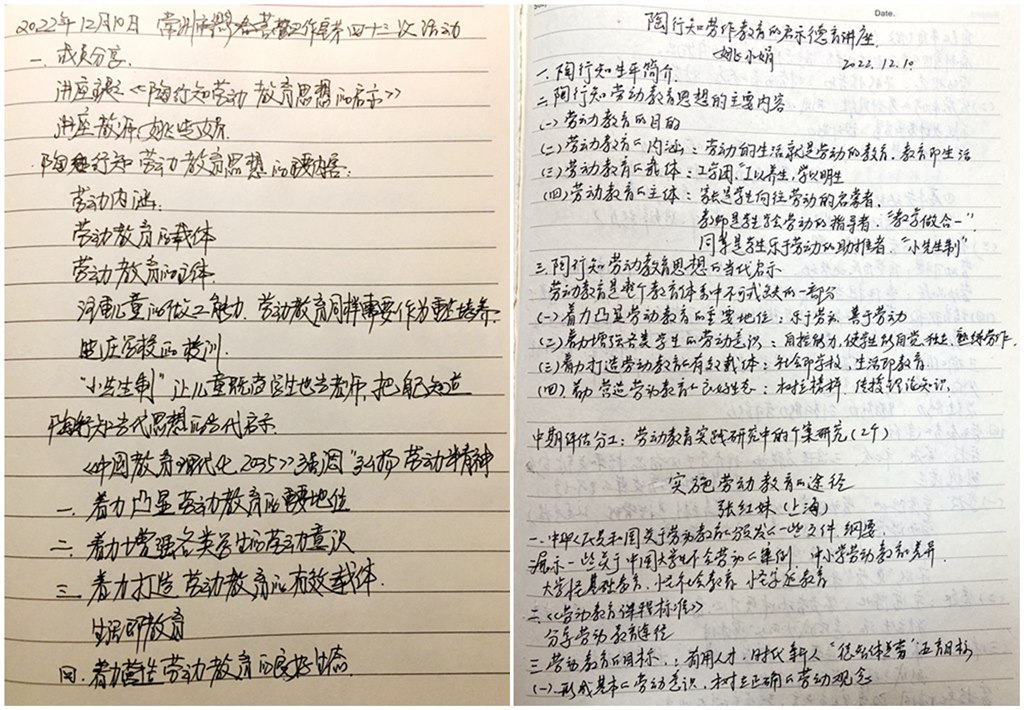 2022年12月10日 常州市 工作室第四十三次活动
一. 成员分享.
讲座题《陶行知劳动教育思想的启示》
讲座教师:姚小娟.
陶行知劳动教育思想的主要内容:
劳动内涵:
劳动教育的载体
劳动教育的主体.
注重儿童的做工能力. 劳动教育同样需要作为重点培养.
的校训.
"小先生制" 让儿童既当学生也当老师,把自己知道
陶行知当代思想的当代启示.
《中国教育现代化2035》强调"弘扬劳动精神
一. 着力凸显劳动教育的重要地位
二. 着力增强各类学生的劳动意识
三 着力打造劳动教育的有效载体.
生活即教育
四. 着力营生劳动教育的良好生态.
Date.
陶行知劳作教育的启示德育讲座.
姚小娟 2022.12.10
一.陶行知生平简介.
二.陶行知劳动教育思想的主要内容
(一)劳动教育的目的
(二)劳动教育的内涵:劳动的生活就是劳动的教育.教育即生活
(三)劳动教育的载体:工学团,"工以养生,学以明生
(四)劳动教育的主体:家长是学生向往劳动的启蒙者.
教师是学生学会劳动的指导者."教学做合一"
同等是学生乐于劳动的助推者."小先生制"
三.陶行知劳动教育思想的当代启示
劳动教育是整个教育体系中不可或缺的一部分
(一)着力凸显劳动教育的重要地位:乐于劳动.善于劳动
(二)着力增强各类学生的劳动意识:自控能力,使学生能自觉.独立.熟练劳作.
(三)着力打造劳动教育的有效载体:社会即学校,生活即教育.
(四)着力营造劳动教育的良好生态:树立榜样.传授理论知识.
中期评估分工:劳动教育实践研究中的个案研究(2个)
实施劳动教育的途径
张红妹(上海)
一.中央人民和国关于劳动教育的颁发的一些文件.纲要.
展示一些关于中国大学生不会劳动的案例. 中小学劳动教育的差异.
大学轻基础教育,小学轻社会教育,小学轻家庭教育
二.《劳动教育课程标准》
分享劳动教育途径
三.劳动教育的目标:有用人才,时代新人"德智体美劳"五育目标
(一).形成基本的劳动意识,树立正确的劳动观念